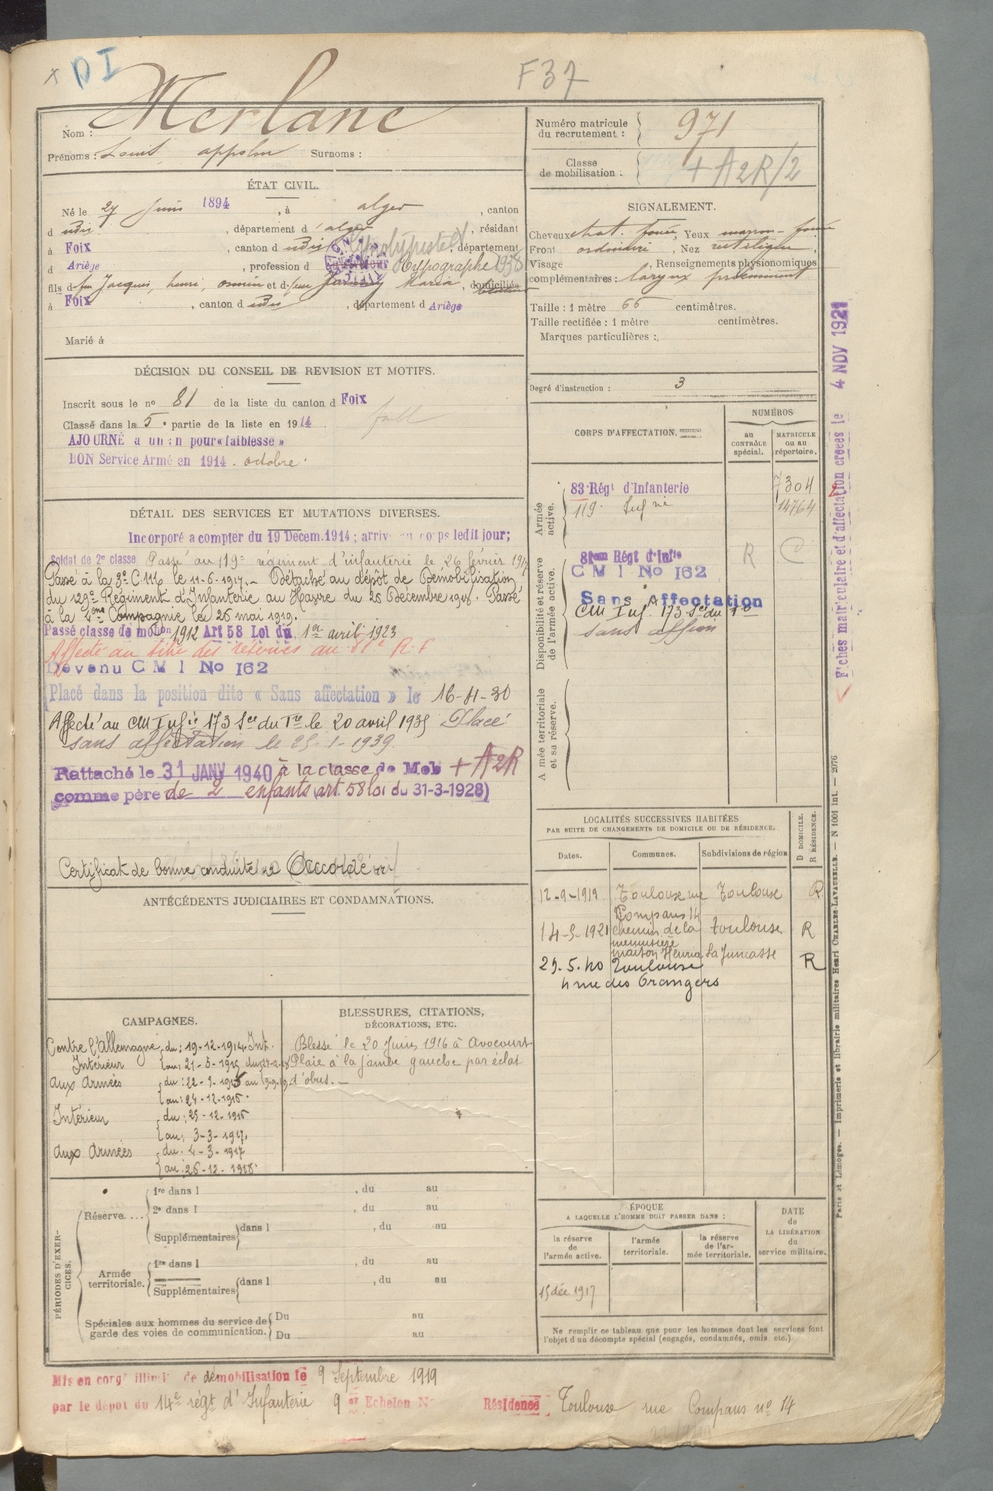 x DI
F37
Nom : Merlane
Prénoms : Louis Surnoms :
Numéro matricule du recrutement : 971
Classe de mobilisation : + A2R/2
ÉTAT CIVIL.
Né le 27 Juin 1894, à alger, canton
d udis, département d'alger, résidant
à Foix, canton d udis, département
d Ariège, profession d Typographe 1938
fils d feu Jacques, henri, et d feu Maria, domiciliés
à Foix, canton d udis, département d Ariège
Marié à
SIGNALEMENT.
Cheveux chat. foncé, Yeux marron foncé
Front ordinaire, Nez rectiligne
Visage Renseignements physionomiques
complémentaires : larynx proéminent
Taille : 1 mètre 66 centimètres.
Taille rectifiée : 1 mètre centimètres.
Marques particulières :
Degré d'instruction : 3
DÉCISION DU CONSEIL DE REVISION ET MOTIFS.
Inscrit sous le nº 81 de la liste du canton d Foix
Classé dans la 5e partie de la liste en 1914
AJOURNÉ à un an pour «faiblesse»
BON Service Armé en 1914. octobre.
DÉTAIL DES SERVICES ET MUTATIONS DIVERSES.
Incorporé à compter du 19 Décem. 1914 ; arrivé au corps ledit jour;
Soldat de 2e classe Passé au 119e régiment d'infanterie le 26 février 191
Passé à la 3e C.M. le 11-6-1917. - Détaché au dépôt de Démobilisation
du 129e Régiment d'Infanterie au Havre du 26 Décembre 1918. Passé
à la 4ème Compagnie le 26 mai 1919.
Passé classe de mobon 1912 Art 58 Loi du 1er avril 1923
Affecté au titre des réserves au 81e R.I
Devenu C M I No 162
Placé dans la position dite « Sans affectation » le 16-11-30
Affecté au CM Infie 173 Son du Tre le 20 avril 1935 Placé
sans affectation le 25-1-1939
Rattaché le 31 JANV 1940 à la classe de Mob + A2R
comme père de 2 enfants (art 58 loi du 31-3-1928)
Certificat de bonne conduite Accordé
ANTÉCÉDENTS JUDICIAIRES ET CONDAMNATIONS.
CORPS D'AFFECTATION.
NUMÉROS
au CONTRÔLE spécial.
MATRICULE ou au répertoire.
Armée active.
83e Régt d'Infanterie 7304
119e Infrie 14764
Disponibilité et réserve de l'armée active.
81eme Régt d'Infie R
C M I No 162
Sans Affectation
CM Inf. 173 Son du Tre
sans affon
Armée territoriale et sa réserve.
Fiches matriculaire et d'affectation créées le 4 NOV 1921
LOCALITÉS SUCCESSIVES HABITÉES
PAR SUITE DE CHANGEMENTS DE DOMICILE OU DE RÉSIDENCE.
Dates. Communes. Subdivisions de région
D DOMICILE. R RÉSIDENCE.
12-9-1919 Toulouse rue Compans 14 Toulouse R
14-5-1921 chemin de la maison Henria La Juncasse Toulouse R
29.5.40 Toulouse R
4 rue des Orangers
CAMPAGNES.
Contre l'Allemagne du : 19-12-1914
Intérieur au : 21-5-1915
aux Armées du : 22-5-1915
au : 24-12-1916.
Intérieur du : 25-12-1916
au : 3-3-1917.
aux Armées du : 4-3-1917
au : 26-12-1918.
BLESSURES, CITATIONS,
DÉCORATIONS, ETC.
Blessé le 20 Juin 1916 à Avocourt
Plaie à la jambe gauche par éclat
d'obus. -
PÉRIODES D'EXERCICES.
Réserve....
1re dans l , du au
2e dans l , du au
Supplémentaires dans l , du au
Armée territoriale.
1re dans l , du au
Supplémentaires dans l , du au
Spéciales aux hommes du service de garde des voies de communication.
Du au
Du au
ÉPOQUE
A LAQUELLE L'HOMME DOIT PASSER DANS :
la réserve de l'armée active.
l'armée territoriale.
la réserve de l'armée territoriale.
DATE de LA LIBÉRATION du service militaire.
15 déc 1917
Ne remplir ce tableau que pour les hommes dont les services font
l'objet d'un décompte spécial (engagés, condamnés, omis etc.)
Paris et Limoges. — Imprimerie et librairie militaires Henri CHARLES-LAVAUZELLE. — N 1001 int. — 2076
Mis en congé illimité de démobilisation le 9 Septembre 1919
par le dépôt du 14e régt d'Infanterie 9e Echelon N° Résidence Toulouse rue Compans nº 14